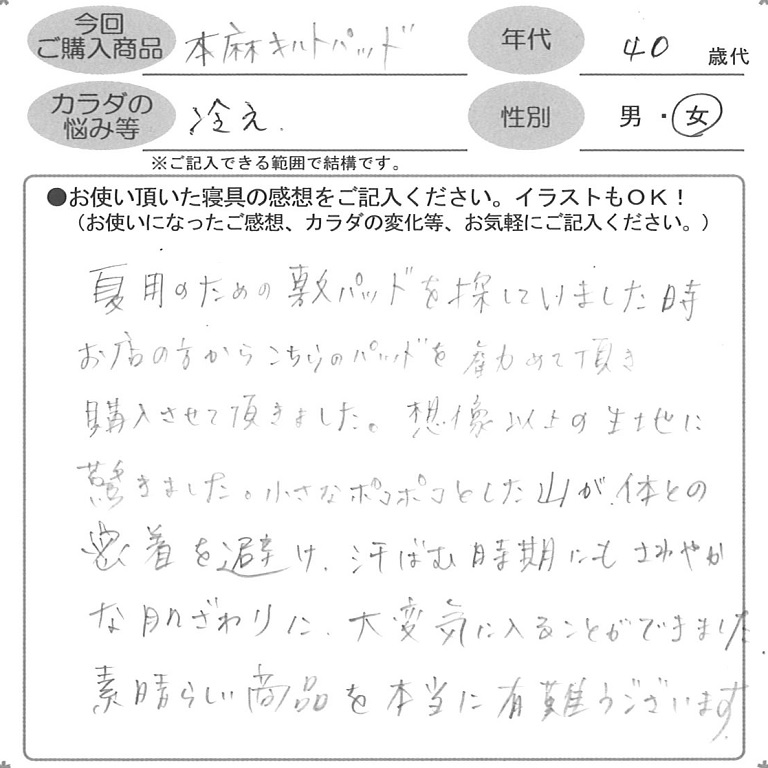 今回
ご購入商品
本麻キルトパッド
年代
40 歳代
カラダの
悩み等
冷え.
性別
男・女
※ご記入できる範囲で結構です。
●お使い頂いた寝具の感想をご記入ください。イラストもOK！
（お使いになったご感想、カラダの変化等、お気軽にご記入ください。）
夏用のための敷パッドを探していました時
お店の方からこちらのパッドを勧めて頂き
購入させて頂きました。想像以上の生地に
驚きました。小さなポコポコとした山が、体との
密着を避け、汗ばむ時期にもさわやか
な肌ざわりに、大変気に入ることができました.
素晴らしい商品を本当に有難うございます.